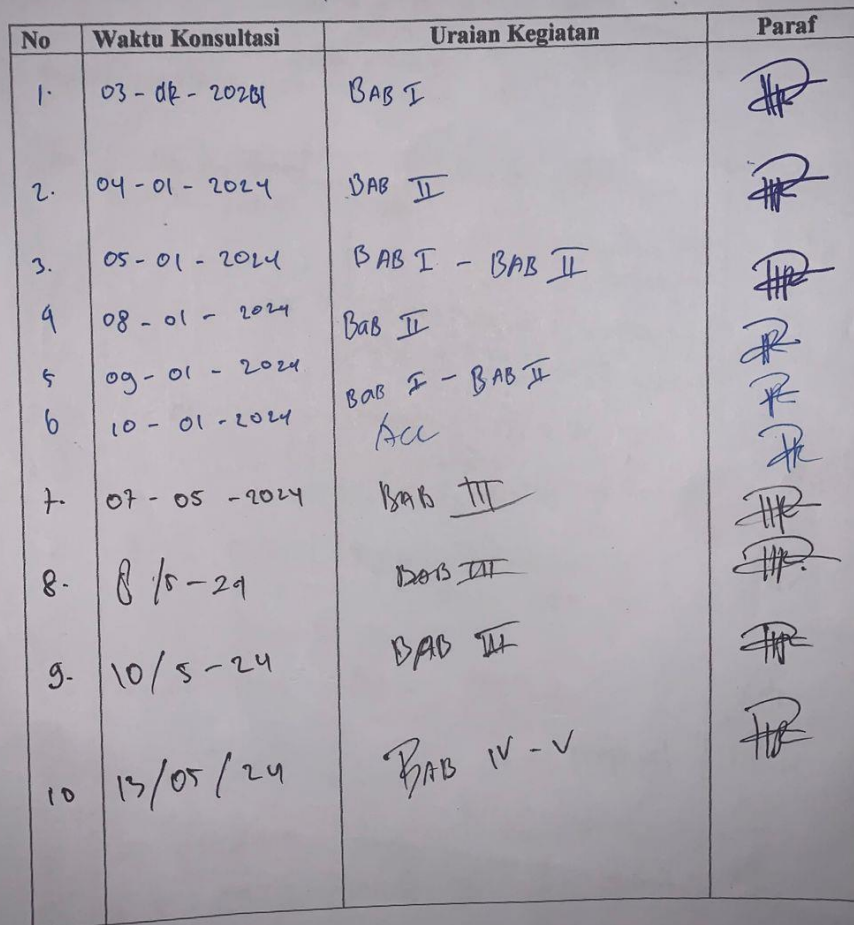 No Waktu Konsultasi Uraian Kegiatan Paraf
1. 03 - - BAB I
2. 04 - 01 - 2024 BAB II
3. 05 - 01 - 2024 BAB I - BAB II
4 08 - 01 - 2024 BaB II
5 09 - 01 - 2024 BaB I - BAB II
6 10 - 01 - 2024 Acc
7. 07 - 05 - 2024 BAB III
8. 8 /5 - 24 BAB III
9. 10/5 - 24 BAB III
10 13/05/24 BAB IV - V